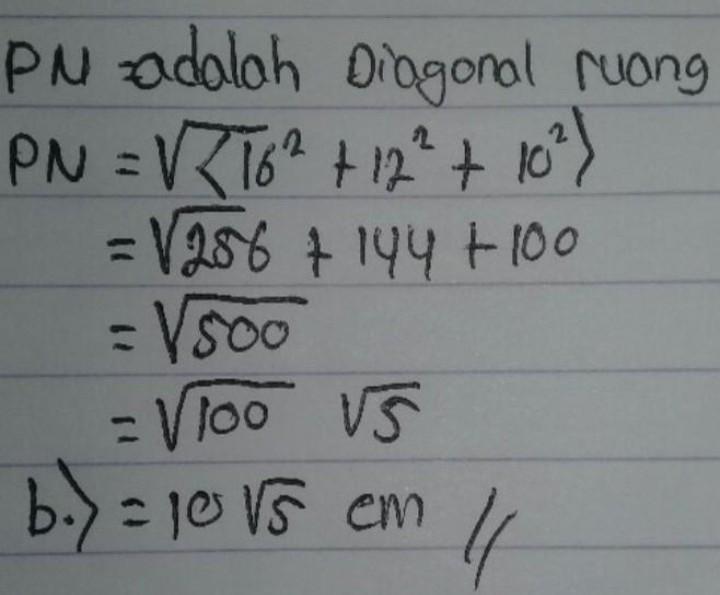 PN = adalah Diagonal ruang
PN = √(16² + 12² + 10²)
= √256 + 144 + 100
= √500
= √100 √5
b.) = 10 √5 cm //